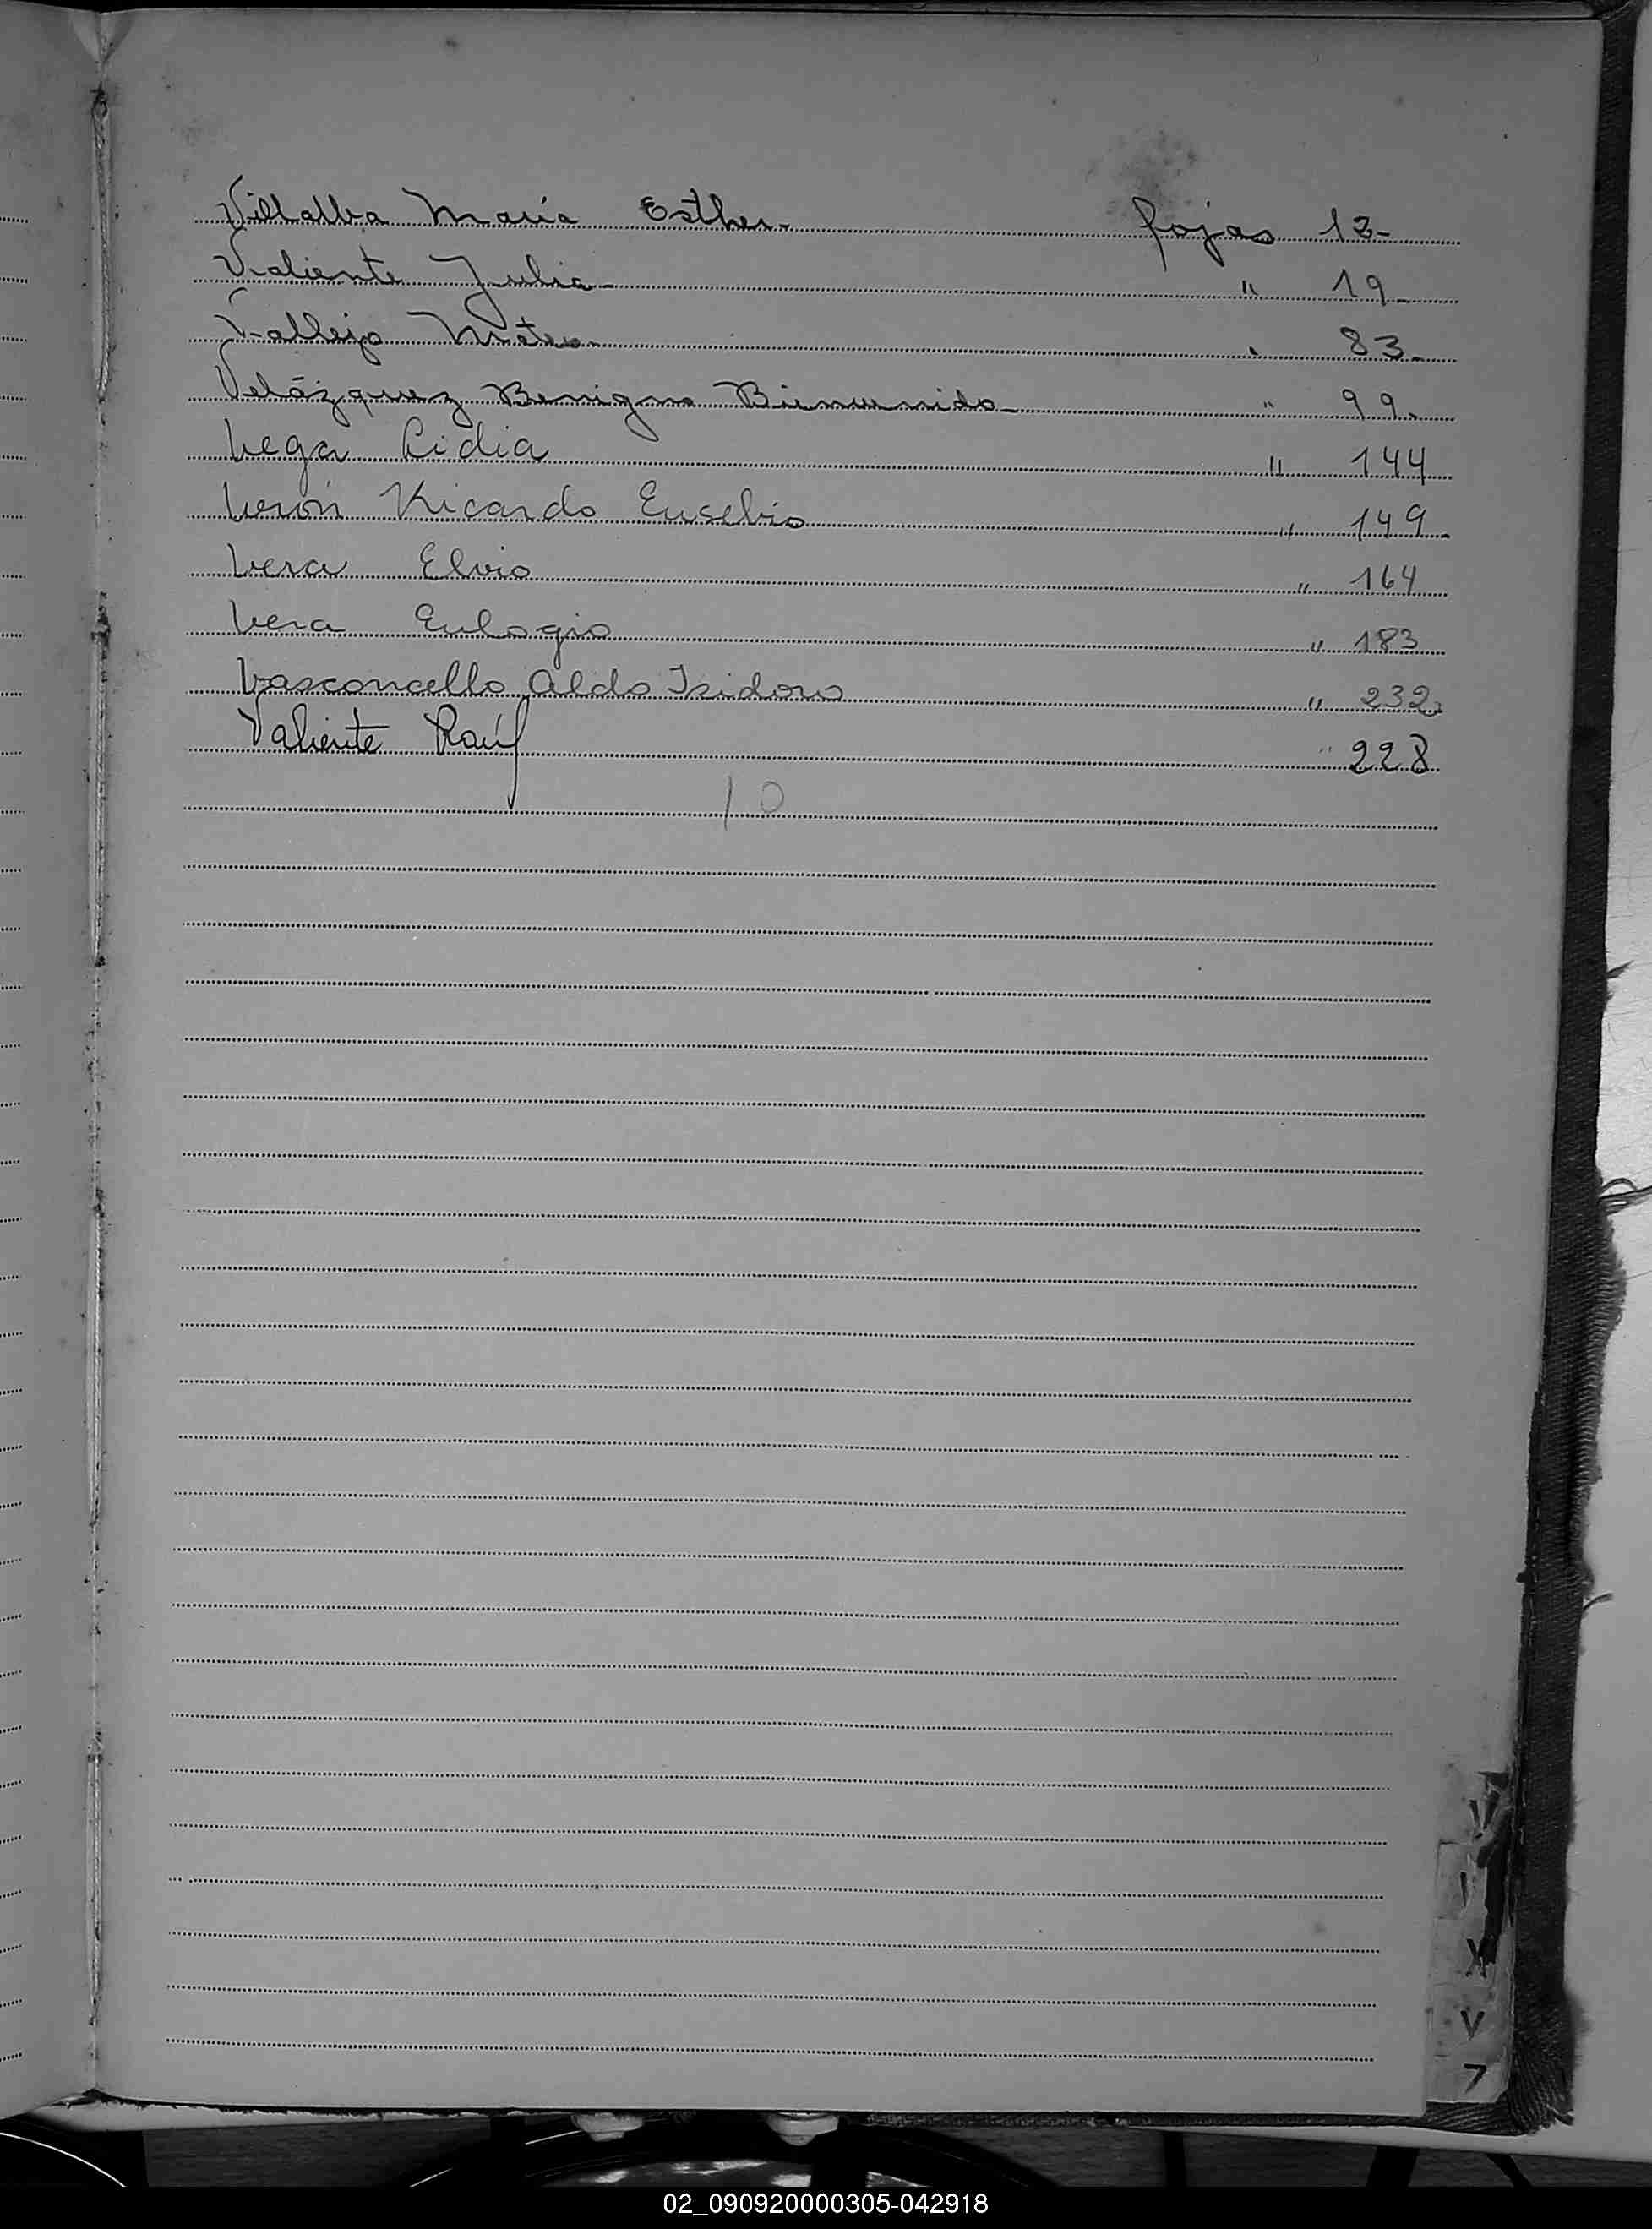 Villalba María Esther- fojas 12-
Valiente Julia- " 19-
Vallejo Mateo- " 83-
Velázquez Benigno Bienvenido- " 99.
Vega Lidia " 144
Verón Ricardo Eusebio " 149
Vera Elvio " 164
Vera Eulogio " 183
Vasconcello Aldo Isidoro " 232
Valiente Raúl " 228
10
V
X
V
7
02_090920000305-042918